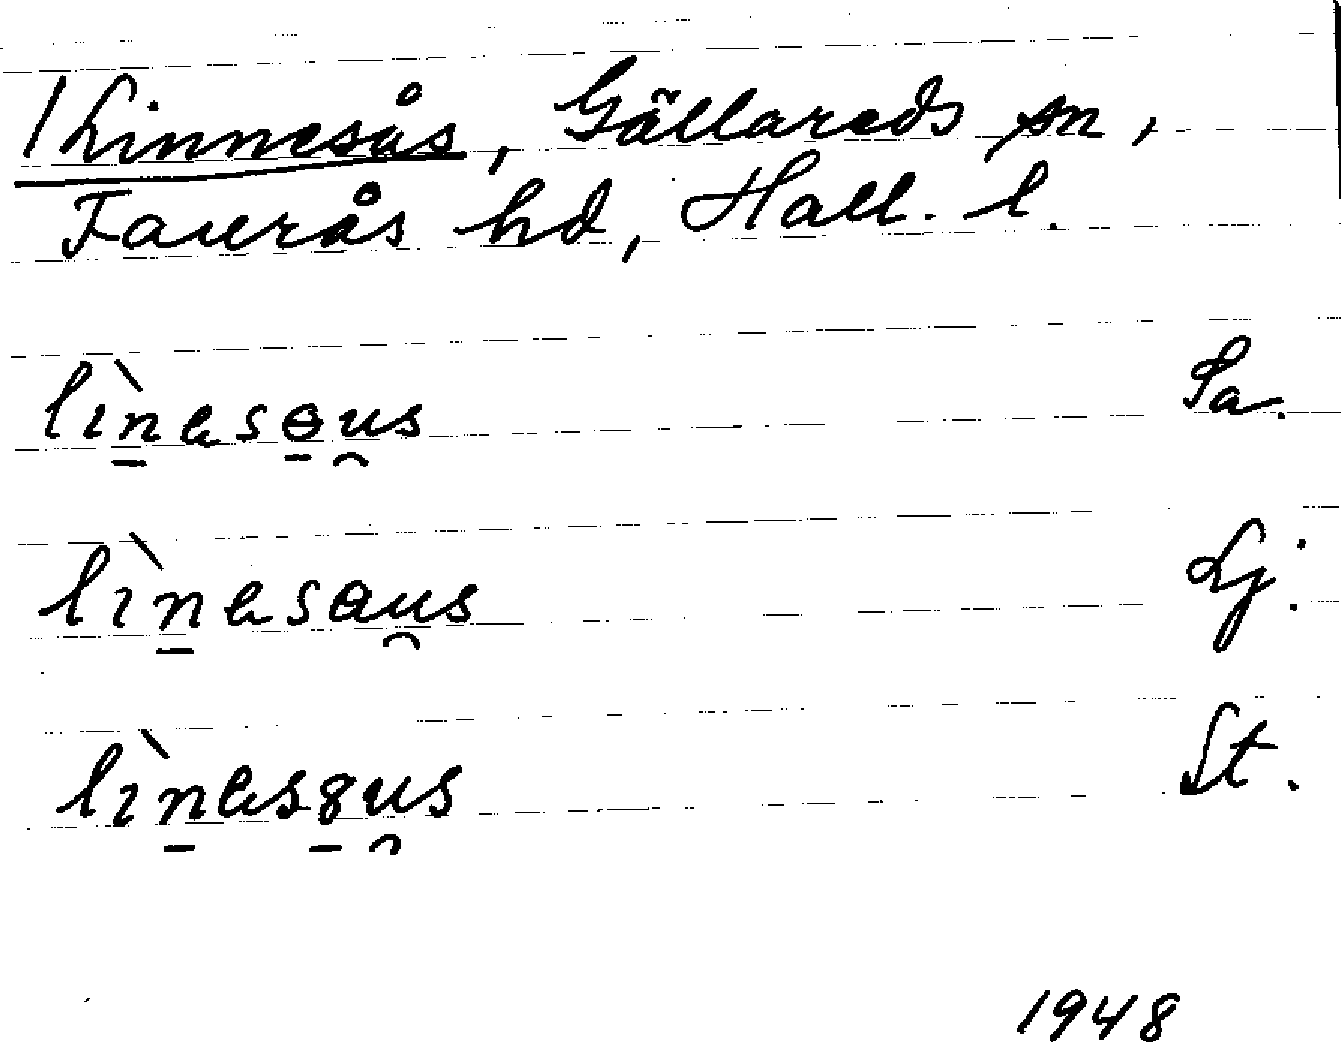 1 Linnesås, Gällareds sn,
Faurås hd, Hall. l.
lìn̠esɵ̠u̯s Sa.
lìn̠esau̯s Lj.
lìn̠es8̠u̯s St.
1948